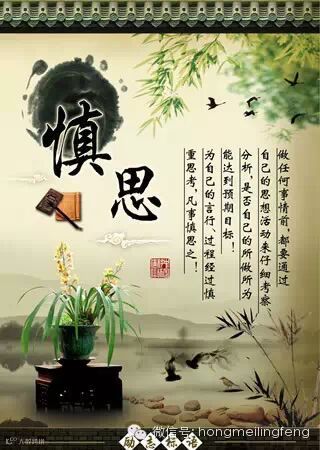 慎思
做任何事情前，都要通过
自己的思想活动来仔细考察
分析，是否自己的所做所为
能达到预期目标！
为自己的言行、过程经过慎
重思考，凡事慎思之！
励志标语
微信号: hongmeilingfeng